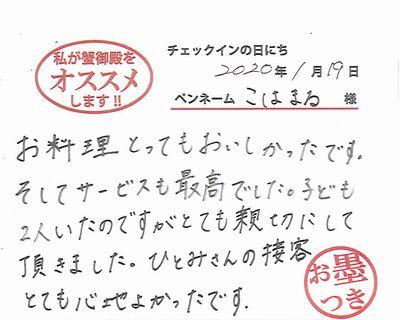 私が蟹御殿を
オススメ
します!!
チェックインの日にち
2020年1月19日
ペンネーム こはまる 様
お料理とってもおいしかったです。
そしてサービスも最高でした。子ども
2人いたのですがとても親切にして
頂きました。ひとみさんの接客
とても心地よかったです.
お墨
つき